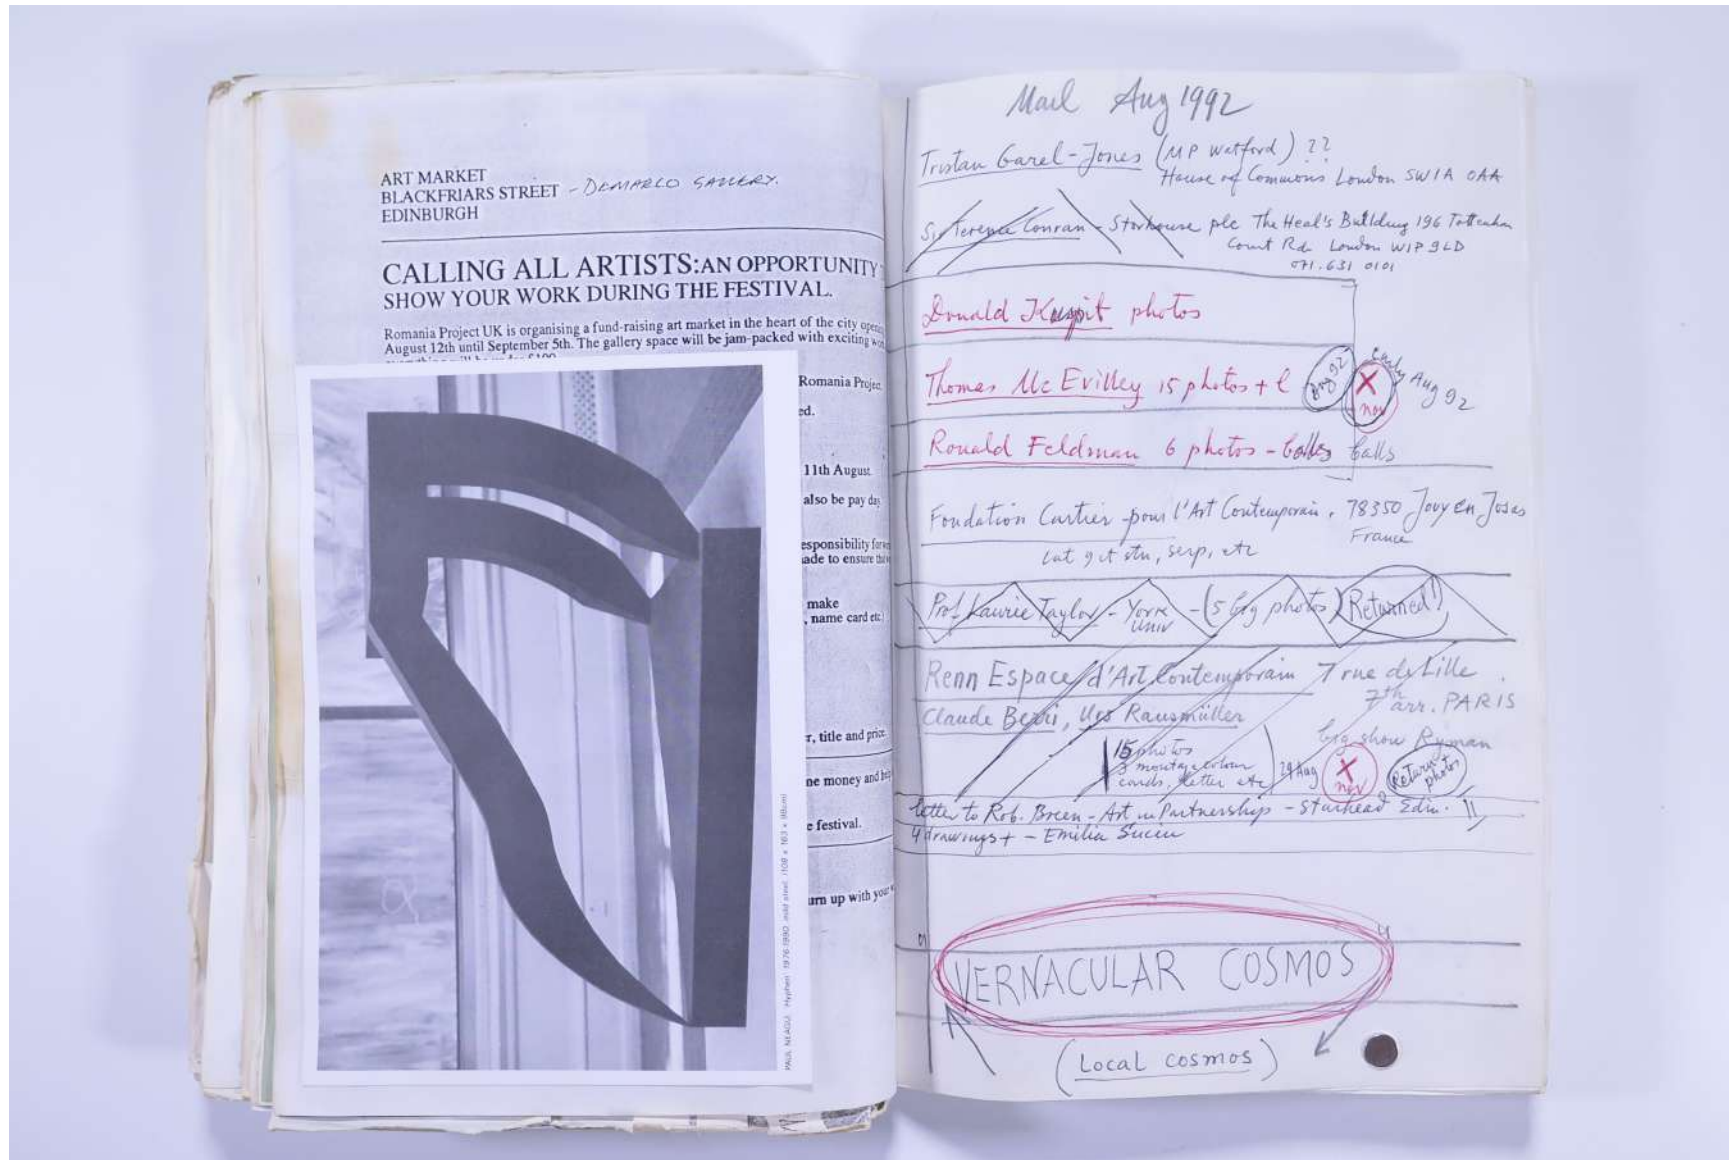 ART MARKET
BLACKFRIARS STREET - DEMARCO GALLERY.
EDINBURGH
CALLING ALL ARTISTS: AN OPPORTUNITY
SHOW YOUR WORK DURING THE FESTIVAL.
Romania Project UK is organising a fund-raising art market in the heart of the city
August 12th until September 5th. The gallery space will be jam-packed with exciting
Romania Project
ed.
11th August
also be pay day
esponsibility for
ade to ensure
make
, name card etc)
r, title and price.
ne money and
e festival.
urn up with your
PAUL NEAGU. 'Hyphen' 1976-1990. mild steel. (108 x 163 x 98cm)
Mail Aug 1992
Tristan Garel-Jones (MP Watford) ??
House of Commons London SW1A 0AA
Sir Terence Conran - Storehouse plc The Heal's Building 196 Tottenham
Court Rd. London W1P 9LD
071.631 0101
Donald Kuspit photos
Thomas Mc Evilley 15 photos + l Aug 92 X nov Early Aug 92
Ronald Feldman 6 photos - balls balls
Fondation Cartier pour l'Art Contemporain, 78350 Jouy en Josas
France
cat, serp, etc
Prof. Laurie Taylor - York Univ - (5 big photos) Returned!
Renn Espace d'Art Contemporain 7 rue de Lille
7th arr. PARIS
Claude Berri, Urs Rausmüller
big show Ryman
15 photos
3 montage colour
cards, letter etc 29 Aug X nov Return photos
letter to Rob. Breen - Art in Partnership - Edin. !!
4 drawings + - Emilia Suciu
VERNACULAR COSMOS
(Local cosmos)